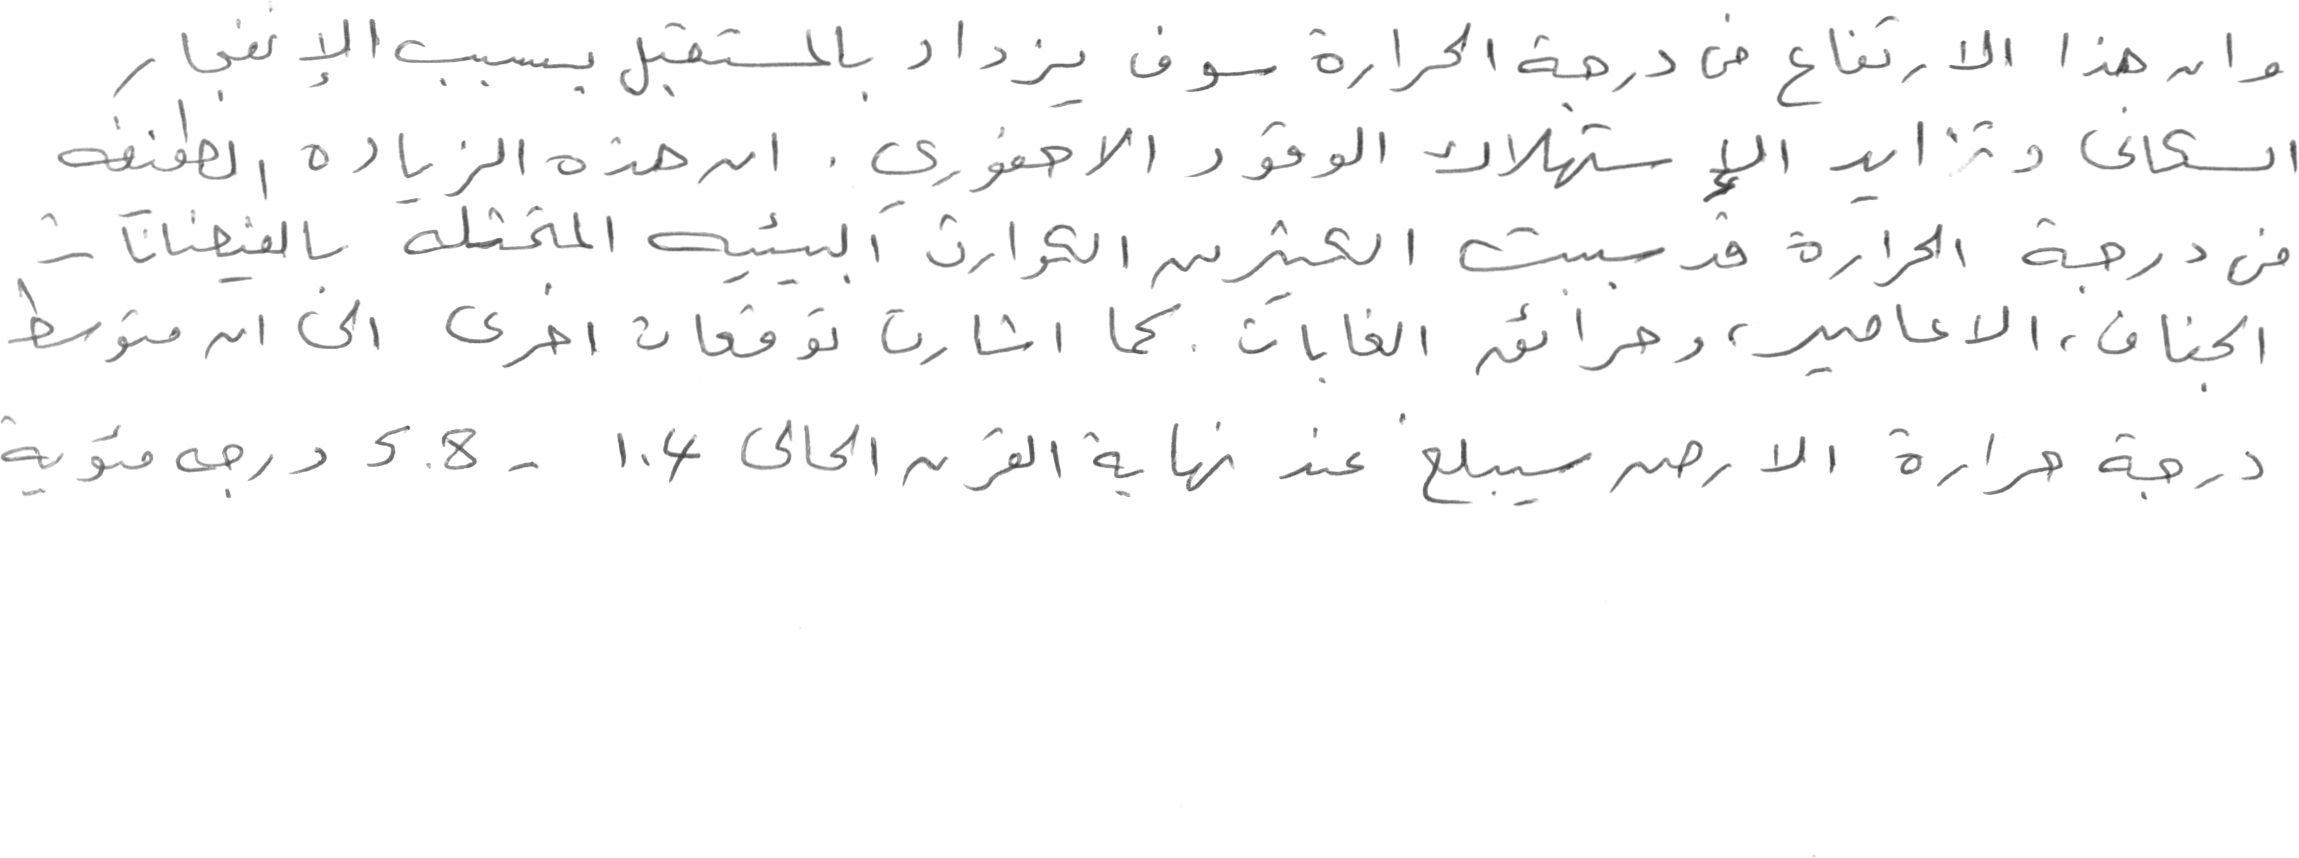 وان هذا الارتفاع في درجة الحرارة سوف يزداد بالمستقبل بسبب الإنفجار
السكاني وتزايد الإستهلاك الوقود الاحفوري . ان هذه الزياده الطفيفه
في درجة الحرارة قد سببت الكثير من الكوارث البيئيه المتمثله بالفيضانات
الجفاف، الاعاصير، وحرائق الغابات . كما اشارت توقعات اخرى الى ان متوسط
درجة حرارة الارض سيبلغ عند نهاية القرن الحالي 1.4 - 5.8 درجه مئوية